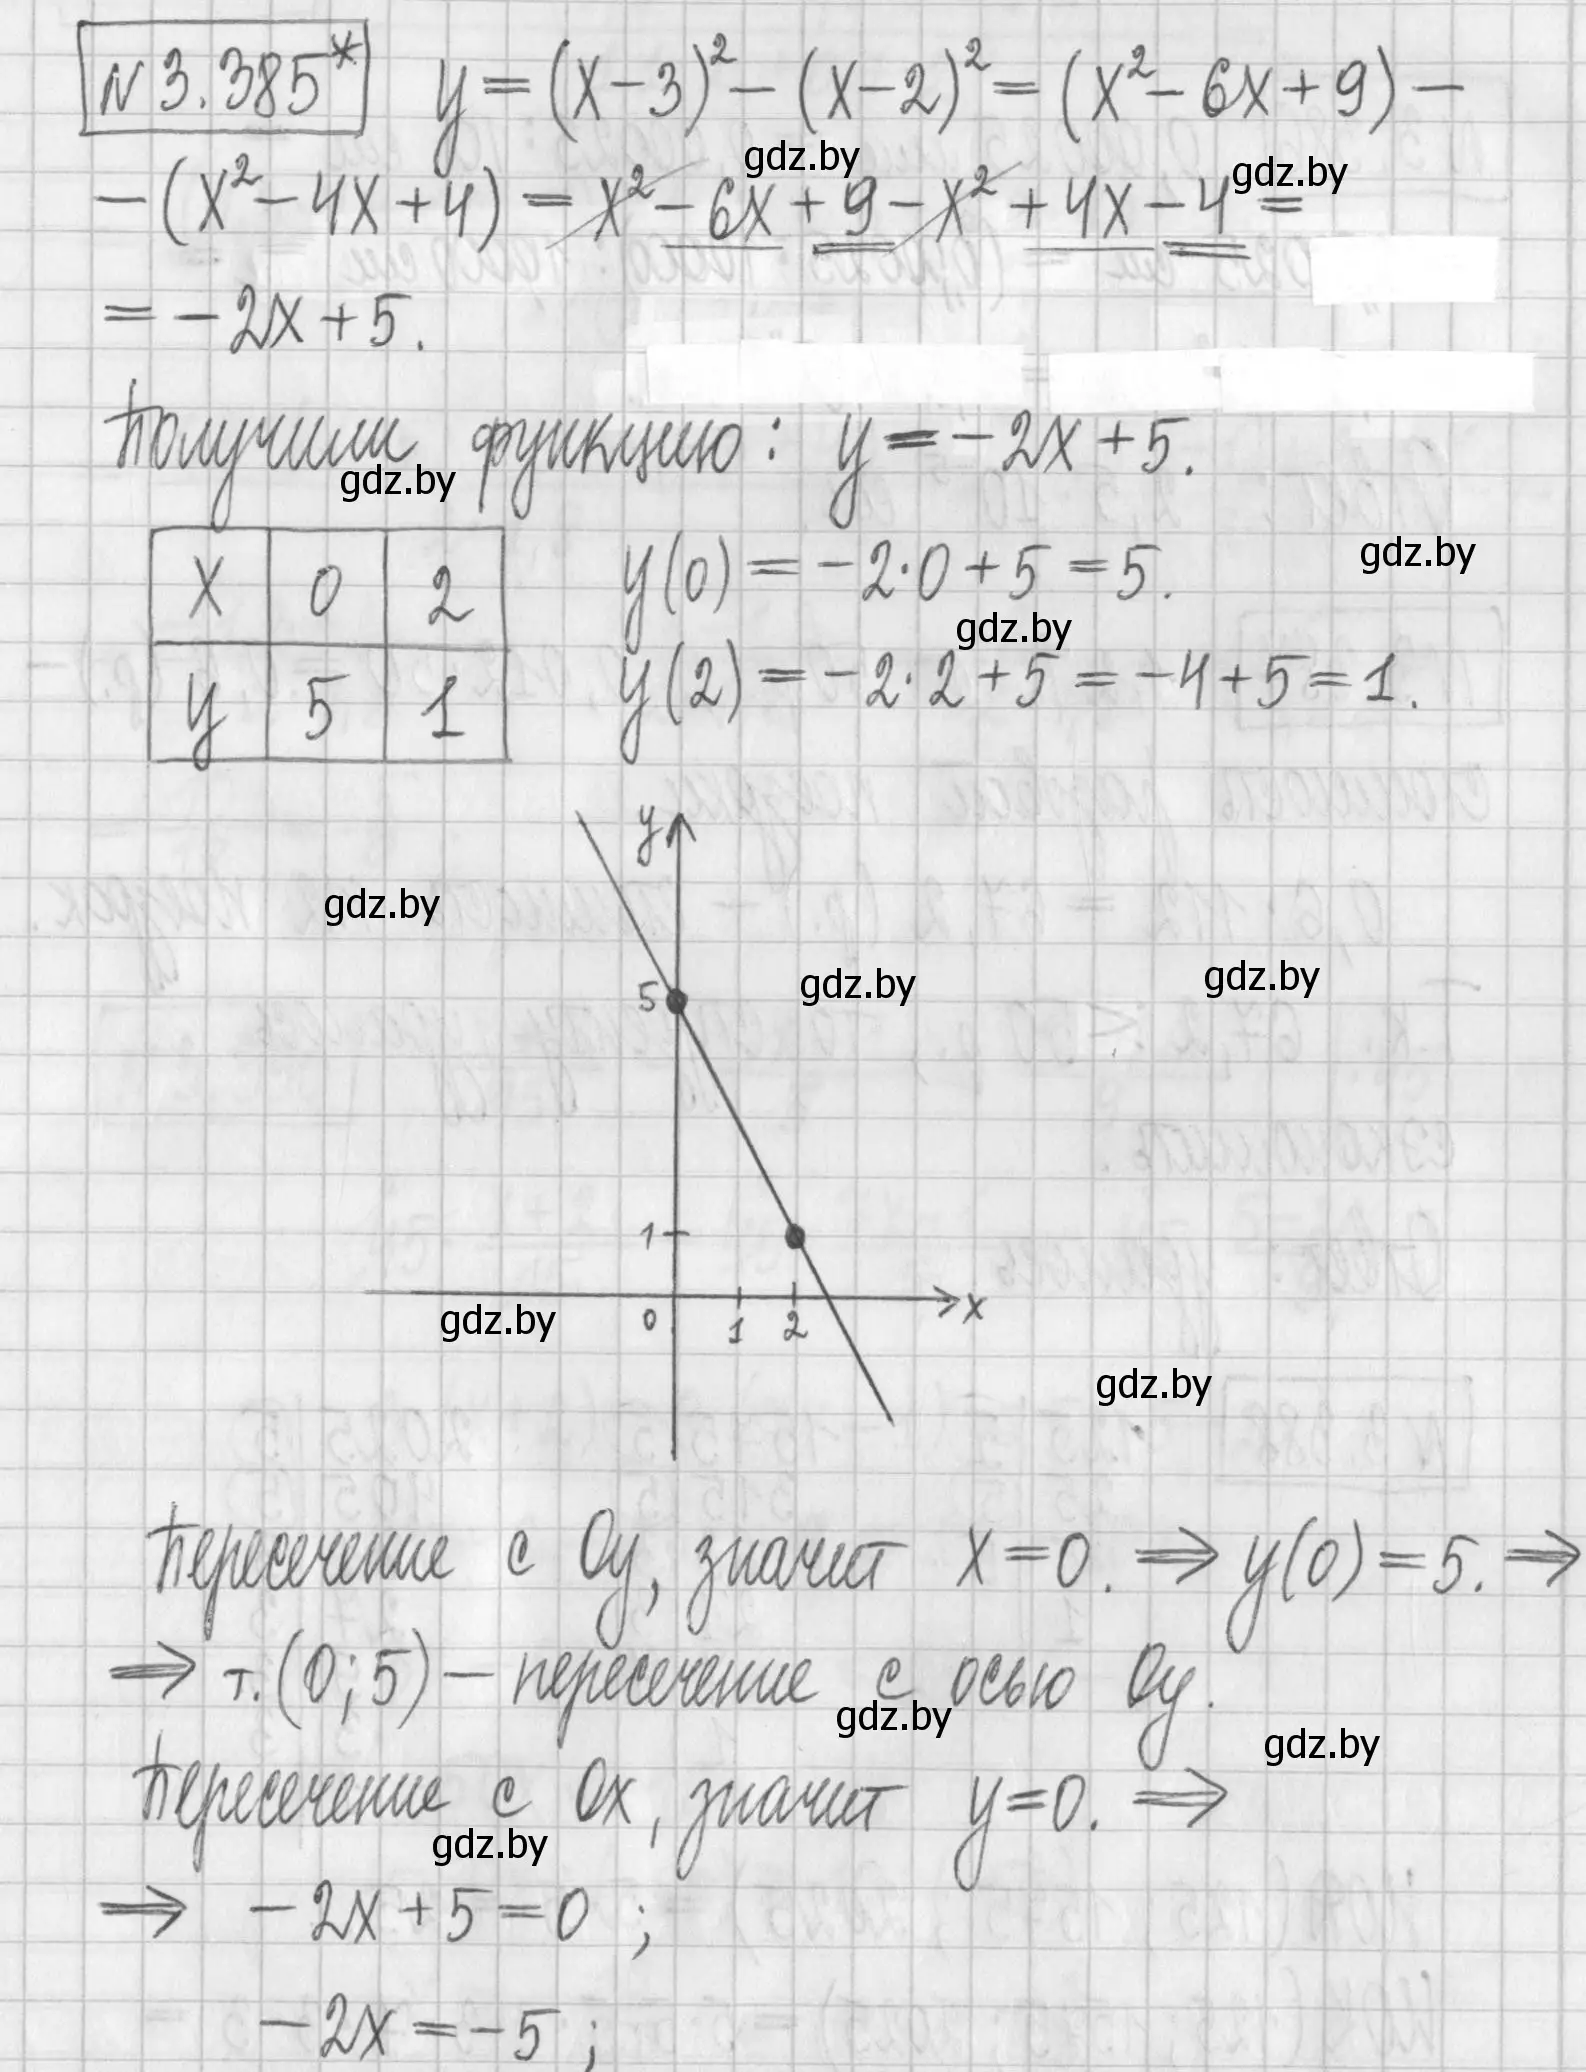 № 3.385* y = (x-3)² - (x-2)² = (x² - 6x + 9) -
gdz.by gdz.by
- (x² - 4x + 4) = x² - 6x + 9 - x² + 4x - 4 =
= -2x + 5.
Получили функцию: y = -2x + 5.
gdz.by
x 0 2 y(0) = -2·0 + 5 = 5. gdz.by
gdz.by
y 5 1 y(2) = -2·2 + 5 = -4 + 5 = 1.
y
gdz.by
gdz.by gdz.by
5
1
x
0 1 2
gdz.by
gdz.by
Пересечение с Oy, значит x = 0. ⇒ y(0) = 5. ⇒
⇒ т. (0; 5) - пересечение с осью Oy.
gdz.by gdz.by
Пересечение с Ox, значит y = 0. ⇒
gdz.by
⇒ -2x + 5 = 0 ;
-2x = -5 ;